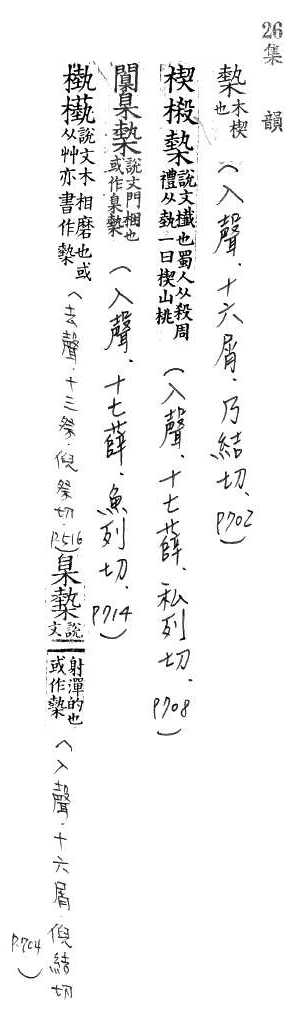 26集韻
槷木楔也(入聲.十六屑.乃結切.P702)
楔榝槷說文櫼也蜀人从殺周禮从埶一曰楔山桃(入聲.十七薛.私列切.P708)
闑臬槷說文門梱也或作臬槷(入聲.十七薛.魚列切.P714)
槸櫙說文木相磨也或从艸亦書作槷(去聲.十三祭.倪祭切.P.516)臬槷說文射𤯝的也或作槷(入聲.十六屑.倪結切P.704)